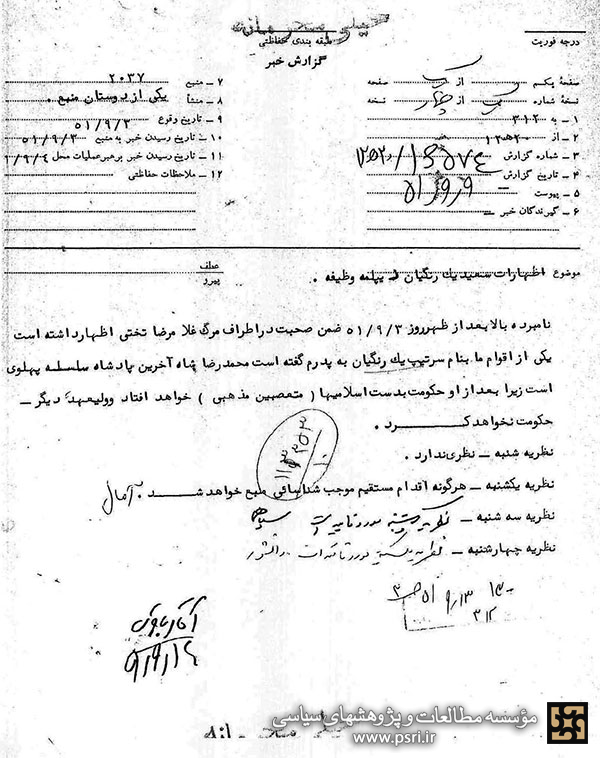 خیلی محرمانه
طبقه بندی حفاظتی
گزارش خبر
درجه فوریت
صفحه یکم از یک صفحه
نسخه شماره یک از چهار نسخه
۱ - به ۳۱۲
۲ - از ۲۰ هـ ۱۲
۳ - شماره گزارش
۴ - تاریخ گزارش
۵ - پیوست
۶ - گیرندگان خبر
۷ - منبع ۲۰۳۷
۸ - منشأ یکی از دوستان منبع .
۹ - تاریخ وقوع ۵۱/۹/۳
۱۰ - تاریخ رسیدن خبر به منبع ۵۱/۹/۳
۱۱ - تاریخ رسیدن خبر برهبر عملیات محل ۱/۹/۴
۱۲ - ملاحظات حفاظتی
موضوع اظهارات سعید یك رنگیان دیپلمه وظیفه .
عطف
پیرو
نامبرده بالا بعد از ظهر روز ۵۱/۹/۳ ضمن صحبت در اطراف مرگ غلا مرضا تختی اظهار داشته است
یکی از اقوام ما بنام سرتیپ یك رنگیان به پدرم گفته است محمد رضا شاه آخرین پادشاه سلسله پهلوی
است زیرا بعد از او حکومت بدست اسلامیها ( متعصبین مذهبی ) خواهد افتاد و ولیعهد دیگر -
حکومت نخواهد کرد .
نظریه شنبه - نظری ندارد .
نظریه یکشنبه - هرگونه اقدام مستقیم موجب شناسائی منبع خواهد شد . آمال
نظریه سه شنبه - نظریه یکشنبه مورد تایید است
نظریه چهارشنبه - نظریه یکشنبه مورد تائید است
۳۱۲
خیلی محرمانه
مؤسسه مطالعات و پژوهشهای سیاسی
www.psri.ir